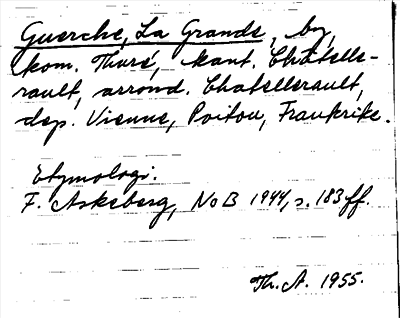 Guerche, La Grande, by,
kom. Thuré, kant. Châtelle-
rault, arrond. Chatellerault,
dep. Vienne, Poitou, Frankrike.
Etymologi.
F. Askeberg, NoB 1944, s. 183 ff.
Th. A. 1955.